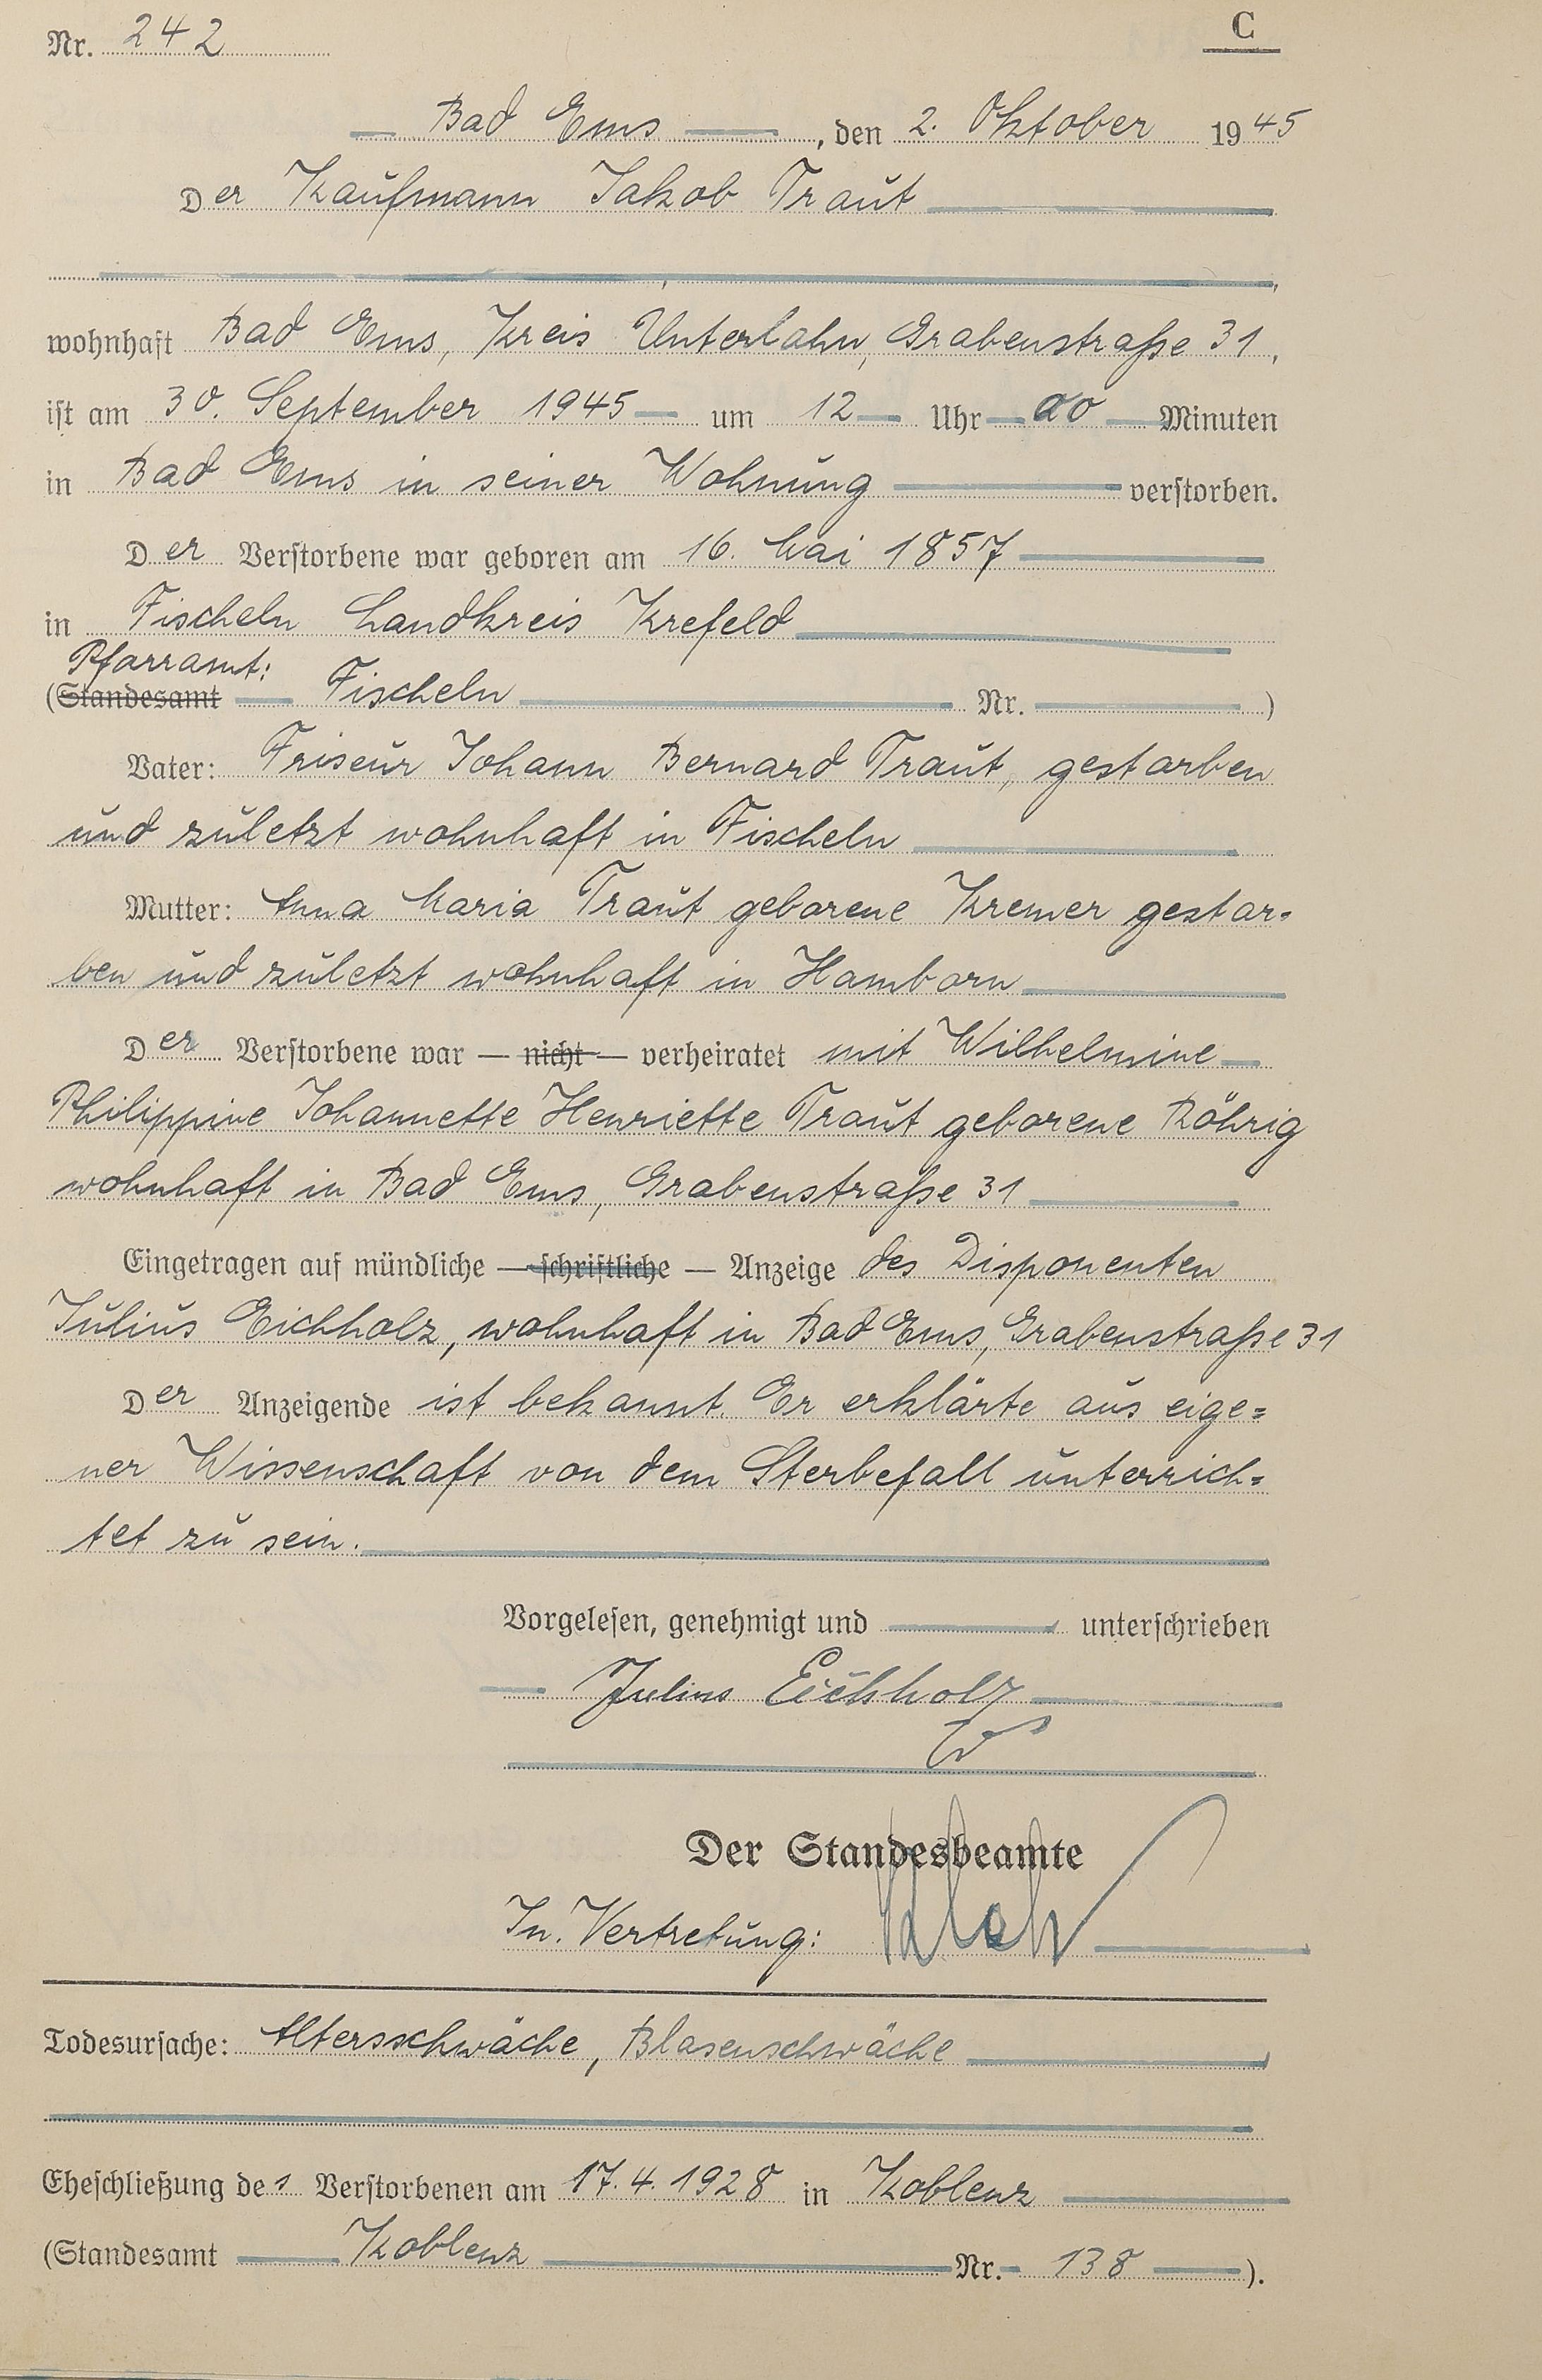 Nr. 242
C
Bad Ems, den 2. Oktober 1945
Der Kaufmann Jakob Traut
wohnhaft Bad Ems, Kreis Unterlahn, Grabenstraße 31,
ist am 30. September 1945 um 12 Uhr 00 Minuten
in Bad Ems in seiner Wohnung verstorben.
Der Verstorbene war geboren am 16. Mai 1857
in Fischeln Landkreis Krefeld
Pfarramt:
(Standesamt Fischeln Nr. )
Vater: Friseur Johann Bernard Traut, gestorben
und zuletzt wohnhaft in Fischeln
Mutter: Anna Maria Traut geborene Kremer gestor-
ben und zuletzt wohnhaft in Hamborn
Der Verstorbene war — nicht — verheiratet mit Wilhelmine
Philippine Johannette Henriette Traut geborene Röhrig
wohnhaft in Bad Ems, Grabenstraße 31
Eingetragen auf mündliche — schriftliche — Anzeige des Disponenten
Julius Eichholz, wohnhaft in Bad Ems, Grabenstraße 31
Der Anzeigende ist bekannt. Er erklärte aus eige=
ner Wissenschaft von dem Sterbefall unterrich=
tet zu sein.
Vorgelesen, genehmigt und unterschrieben
Julius Eichholz
Der Standesbeamte
In. Vertretung:
Todesursache: Altersschwäche, Blasenschwäche
Eheschließung des Verstorbenen am 17.4.1928 in Koblenz
(Standesamt Koblenz Nr. 138 ).